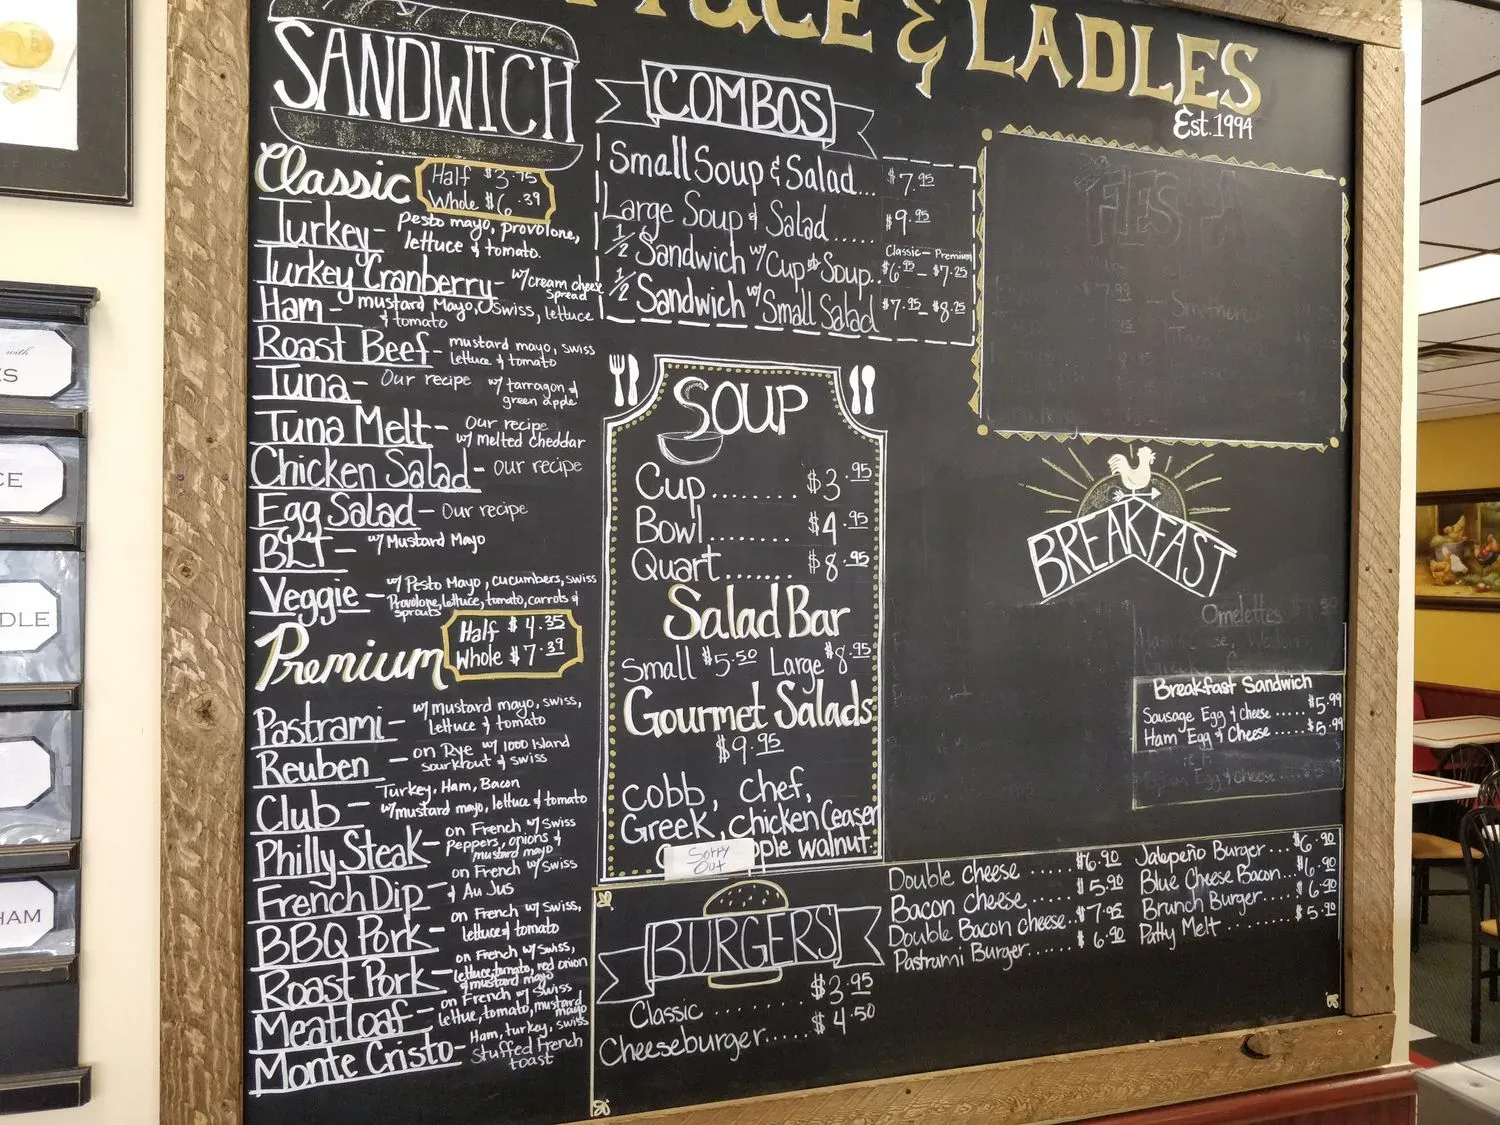 & LADLES
Est. 1994
SANDWICH
Classic
Half $3.75
Whole $6.39
Turkey - Pesto mayo, provolone,
lettuce & tomato.
Turkey Cranberry - w/ cream cheese
spread
Ham - mustard Mayo, swiss, lettuce
& tomato
Roast Beef - mustard mayo, swiss
lettuce & tomato
Tuna - Our recipe w/ tarragon &
green apple
Tuna Melt - Our recipe
w/ melted cheddar
Chicken Salad - Our recipe
Egg Salad - Our recipe
BLT - w/ Mustard Mayo
Veggie - w/ Pesto Mayo, cucumbers, swiss
Provolone, lettuce, tomato, carrots &
sprouts
Premium
Half $4.35
Whole $7.39
Pastrami - w/ mustard mayo, swiss,
lettuce & tomato
Reuben - on Rye w/ 1000 Island
sourkrout & swiss
Club - Turkey, Ham, Bacon
w/ mustard mayo, lettuce & tomato
Philly Steak - on French w/ Swiss
Peppers, onions &
mustard mayo
French Dip - on French w/ Swiss
& Au Jus
BBQ Pork - on French w/ Swiss,
lettuce & tomato
Roast Pork - on French w/ Swiss,
lettuce, tomato, red onion
& mustard mayo
Meatloaf - on French w/ Swiss
lettue, tomato, mustard
mayo
Monte Cristo - Ham, turkey, swiss
Stuffed French
toast
COMBOS
Small Soup & Salad... $7.95
Large Soup & Salad...... $9.95
Classic - Premium
1/2 Sandwich w/ Cup of Soup.. $6.95 - $7.25
1/2 Sandwich w/ Small Salad $7.95 - $8.25
SOUP
Cup........ $3.95
Bowl........ $4.95
Quart....... $8.95
Salad Bar
Small $5.50 Large $8.95
Gourmet Salads
$9.95
Cobb, Chef,
Greek, Chicken Ceaser
walnut
Sorry
Out
BURGERS
Classic ........ $3.95
Cheeseburger..... $4.50
Double Cheese ..... $6.90
Bacon Cheese...... $5.90
Double Bacon Cheese.. $7.95
Pastrami Burger..... $6.90
Jalapeño Burger... $6.90
Blue Cheese Bacon... $6.90
Brunch Burger..... $6.90
Patty Melt ........ $5.90
BREAKFAST
Omelettes
Breakfast Sandwich
Sausage Egg & Cheese ..... $5.99
Ham Egg & Cheese ..... $5.99
Egg & Cheese
with
DLE
HAM